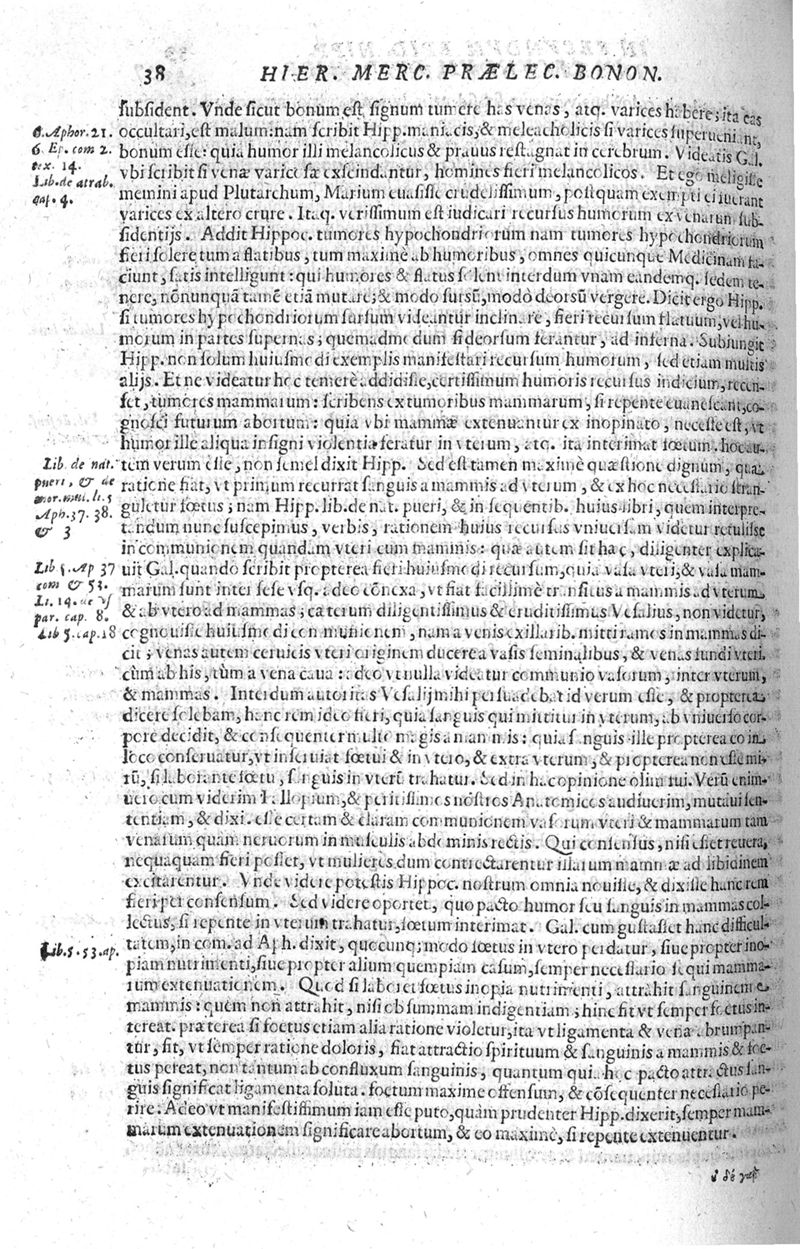 38 HIER. MERC. PRÆLEC. BONON.
subsident. Vnde sicut bonum est, signum tumere has venas, atq. varices habere; ita eas
6. Aphor. 21.
occultari, est malum: nam scribit Hipp. maniacis, & melēacholicis si varices superueniant,
6. Ep. com 2.
bonum esse: quia humor illi melancolicus & prauus restagnat in cerebrum. Videatis Gal.
tex. 14.
vbi scribit si venæ varicosæ exscindantur, homines fieri melancolicos. Et ego me legisse
Lib. de atrab.
memini apud Plutarchum, Marium euasisse crudelissimum, postquam exempti ei fuerant
cap. 4.
varices ex altero crure. Itaq. verissimum est iudicari recursus humorum ex venarum sub-
sidentijs. Addit Hippoc. tumores hypochondriorum nam tumores hypochondriorum
fieri solere tum a flatibus, tum maximè ab humoribus, omnes quicunque Medicinam fa-
ciunt, satis intelligunt: qui humores & flatus solent interdum vnam eandemq. sedem te-
nere, nōnunquā tamē etiā mutare; & modo sursū, modò deorsū vergere. Dicit ergo Hipp.
si tumores hypochondriorum sursum videantur inclinare, fieri recursum flatuum, vel hu-
morum in partes supernas; quemadmodum si deorsum ferantur, ad inferna. Subiungit
Hipp. non solum huiusmodi exemplis manifestari recursum humorum, sed etiam multis
alijs. Et ne videatur hoc temerè addidisse, certissimum humoris recursus indicium, recen-
set, tumores mammarum: scribens ex tumoribus mammarum, si repente euanescant, co-
gnosci futurum abortum: quia vbi mammæ extenuantur ex inopinato, necesse est, vt
humor ille aliqua insigni violentia feratur in vterum, atq. ita interimat fœtum. hoc au-
Lib. de nat.
tem verum esse, non semel dixit Hipp. Sed est tamen maximè quæstione dignum, qua
pueri, & de
ratione fiat, vt primum recurrat sanguis a mammis ad vterum, & ex hoc necessario stran-
mor. mul. li. 5
guletur fœtus; nam Hipp. lib. de nat. pueri, & in sequentib. huius libri, quem interpre-
Aph. 37. 38.
tandum nunc suscepimus, verbis, rationem huius recursus vniuersam videtur retulisse
& 3
in communionem quandam vteri cum mammis: quæ autem sit hæc, diligenter explica-
Lib 5. Ap 37
uit Gal. quando scribit propterea fieri huiusmodi recursum, quia vasa vteri, & vasa mam-
com & 53.
marum sunt inter sese vsq. adeo cōnexa, vt fiat facillimè transitus a mammis ad vterum
Li. 14. de vs
& ab vtero ad mammas; cæterum diligentissimus & eruditissimus Vesalius, non videtur,
par. cap. 8.
Lib 5. cap. 18
cognouisse huiusmodi communionem, nam a venis exillarib. mitti ramos in mammas di-
cit; venas autem ceruicis vteri originem ducere a vasis seminalibus, & venas fundi vteri.
cùm ab his, tùm a vena caua: adeo vt nulla videatur communio vasorum, inter vterum,
& mammas. Interdum autoritas Vesalij mihi persuadebat id verum esse, & propterea
dicere solebam, hanc rem ideo fieri, quia sanguis qui mittitur in vterum, ab vniuerso cor-
pore decidit, & consequenter multo magis a mammis: quia sanguis ille propterea eo in
loco conseruatur, vt inseruiat fœtui & in vtero, & extra vterum, & propterea non esse mi-
rū, si laborante fœtu, sanguis in vterū trahatur. Sed in hac opinione olim fui. Verū enim-
uero cum viderim Fallopium, & peritissimos nostros Anatomicos audiuerim, mutaui sen-
tentiam, & dixi. esse certam & claram communionem vasorum vteri & mammarum tam
venarum quam neruorum in musculis abdominis rectis. Qui consensus, nisi esset reuera,
nequaquam fieri posset, vt mulieres dum contrectarentur illarum mammæ ad libidinem
excitarentur. Vnde videre potestis Hippoc. nostrum omnia nouisse, & dixisse hanc rem
fieri per consensum. Sed videre oportet, quo pacto humor seu sanguis in mammas col-
lectus, si repente in vterum trahatur, fœtum interimat. Gal. cum gustasset hanc difficul-
Lib. 5. 53. ap.
tatem, in com. ad Aph. dixit, quocunq; modo fœtus in vtero perdatur, siue propter ino-
piam nutrimenti, siue propter alium quempiam casum, semper necessario sequi mamma-
rum extenuationem. Quod si laboret fœtus inopia nutrimenti, attrahit sanguinem e
mammis: quem non attrahit, nisi ob summam indigentiam; hinc fit vt semper fœtus in-
tereat. præterea si foetus etiam alia ratione violetur, ita vt ligamenta & venæ abrumpan-
tur, fit, vt semper ratione doloris, fiat attractio spirituum & sanguinis a mammis & foe-
tus pereat, non tantum ab confluxum sanguinis, quantum quia hoc pacto attractus san-
guis significat ligamenta soluta. foetum maxime offensum, & cōsequenter necessario pe-
rire: Adeo vt manifestissimum iam esse puto, quàm prudenter Hipp. dixerit, semper mam-
marum extenuationem significare abortum, & eo maximè, si repente extenuentur.